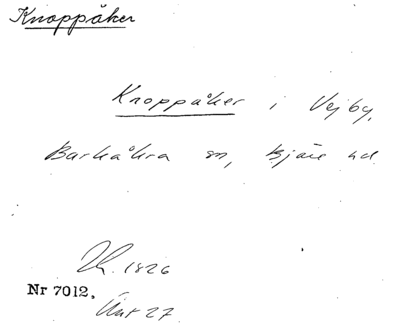 Knoppåker
Knoppåker i Vejby,
Barkåkra sn, Bjäre hd
1826
Nr 7012.
27